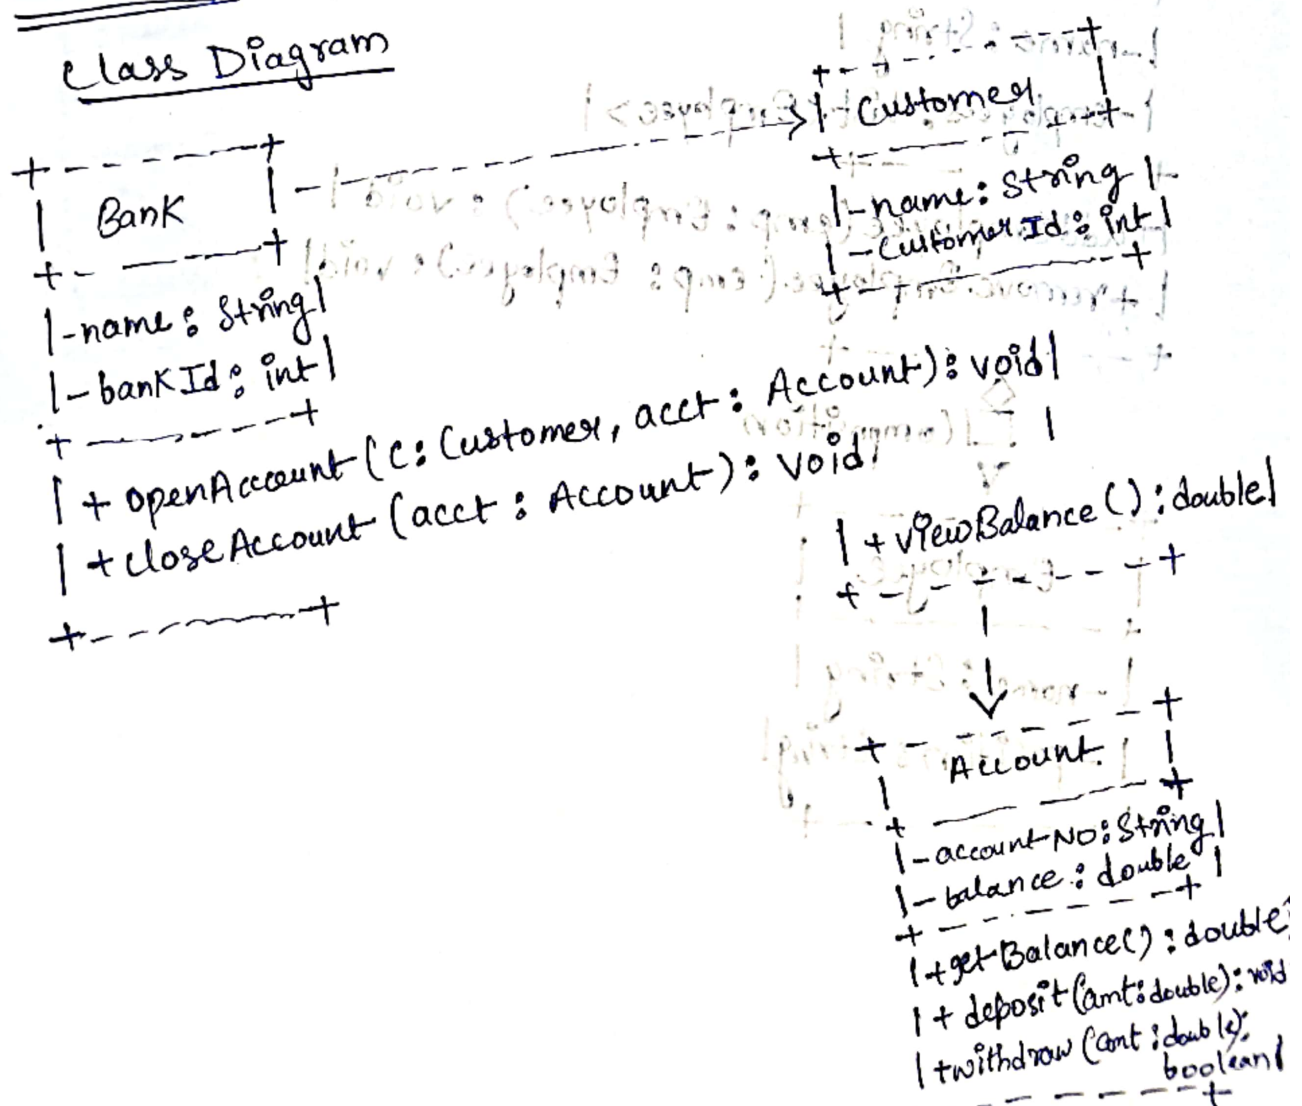 Class Diagram
+-------+
| Bank |
+-------+
|-name: String|
|-bankId: int|
+-------+
|+openAccount(c: Customer, acct: Account): void|
|+closeAccount(acct: Account): void|
+-------+
+-------+
| Customer |
+-------+
|-name: String|
|-CustomerId: int|
+-------+
|+viewBalance(): double|
+-------+
+-------+
| Account |
+-------+
|-accountNo: String|
|-balance: double|
+-------+
|+getBalance(): double|
|+deposit(amt: double): void
|+withdraw(amt: double):
boolean|
-------+